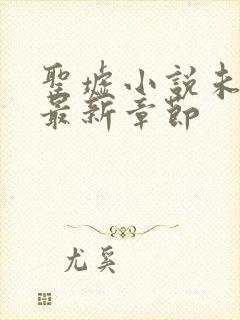 聖墟小說未
最新章節
尤奚